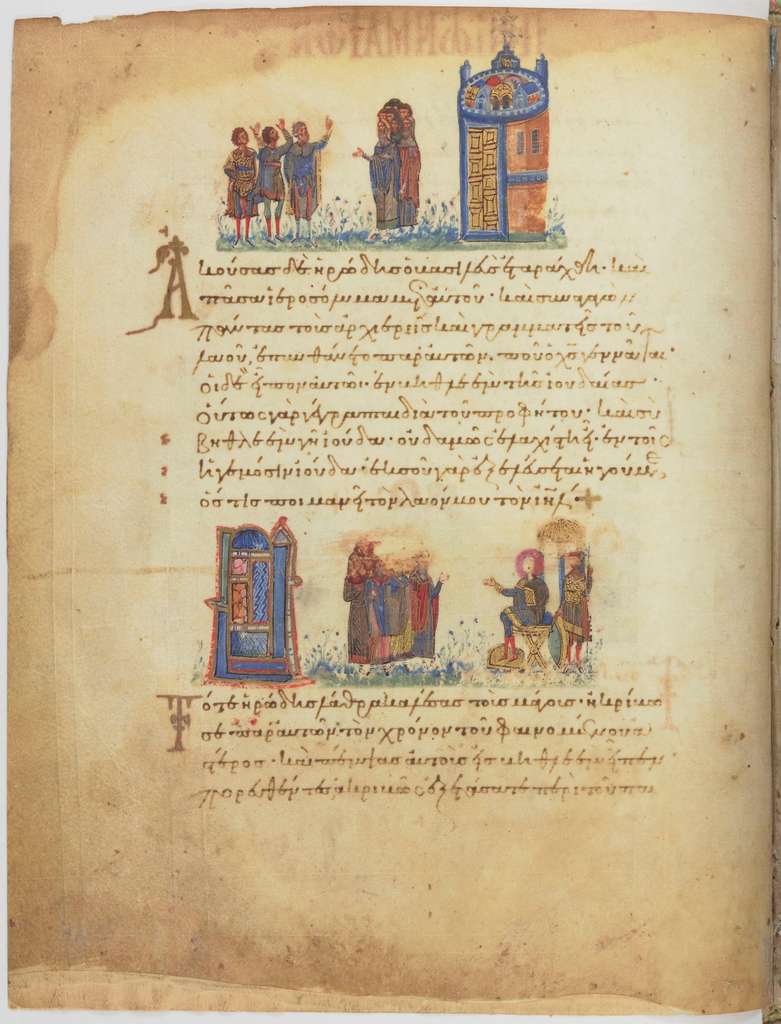 Ἀκούσας δὲ ἡρώδης ὁ βασιλεὺς ἐταράχθη· καὶ
πᾶσα ἱεροσόλυμα μετ αὐτοῦ· καὶ συναγαγὼν
πάντας τοὺς ἀρχιερεῖς καὶ γραμματεῖς τοῦ
λαοῦ, ἐπυνθάνετο παρ αὐτῶν. ποῦ ὁ χς γεννᾶται·
οἱ δὲ εἶπον αὐτῶ· ἐν βηθλεὲμ τῆς ἰουδαίας·
οὕτως γὰρ γέγραπται διὰ τοῦ προφήτου· καὶ σὺ
βηθλεὲμ γῆ ἰούδα· οὐδαμῶς ἐλαχίστη εἶ· ἐν τοῖς
ἡγεμόσιν ἰούδα· ἐκ σοῦ γὰρ ἐξελεύσεται ἡγούμενος
ὅστις ποιμανεῖ τὸν λαόν μου τὸν ιηλ
Τότε ἡρώδης λάθρα καλέσας τοὺς μάγους· ἠκρίβω
σε παρ αὐτῶν τὸν χρόνον τοῦ φαινομένου ἀ
στέρος· καὶ πέμψας αὐτοὺς εἰς βηθλεὲμ εἶπεν·
πορευθέντες ἀκριβῶς ἐξετάσατε περὶ τοῦ παι